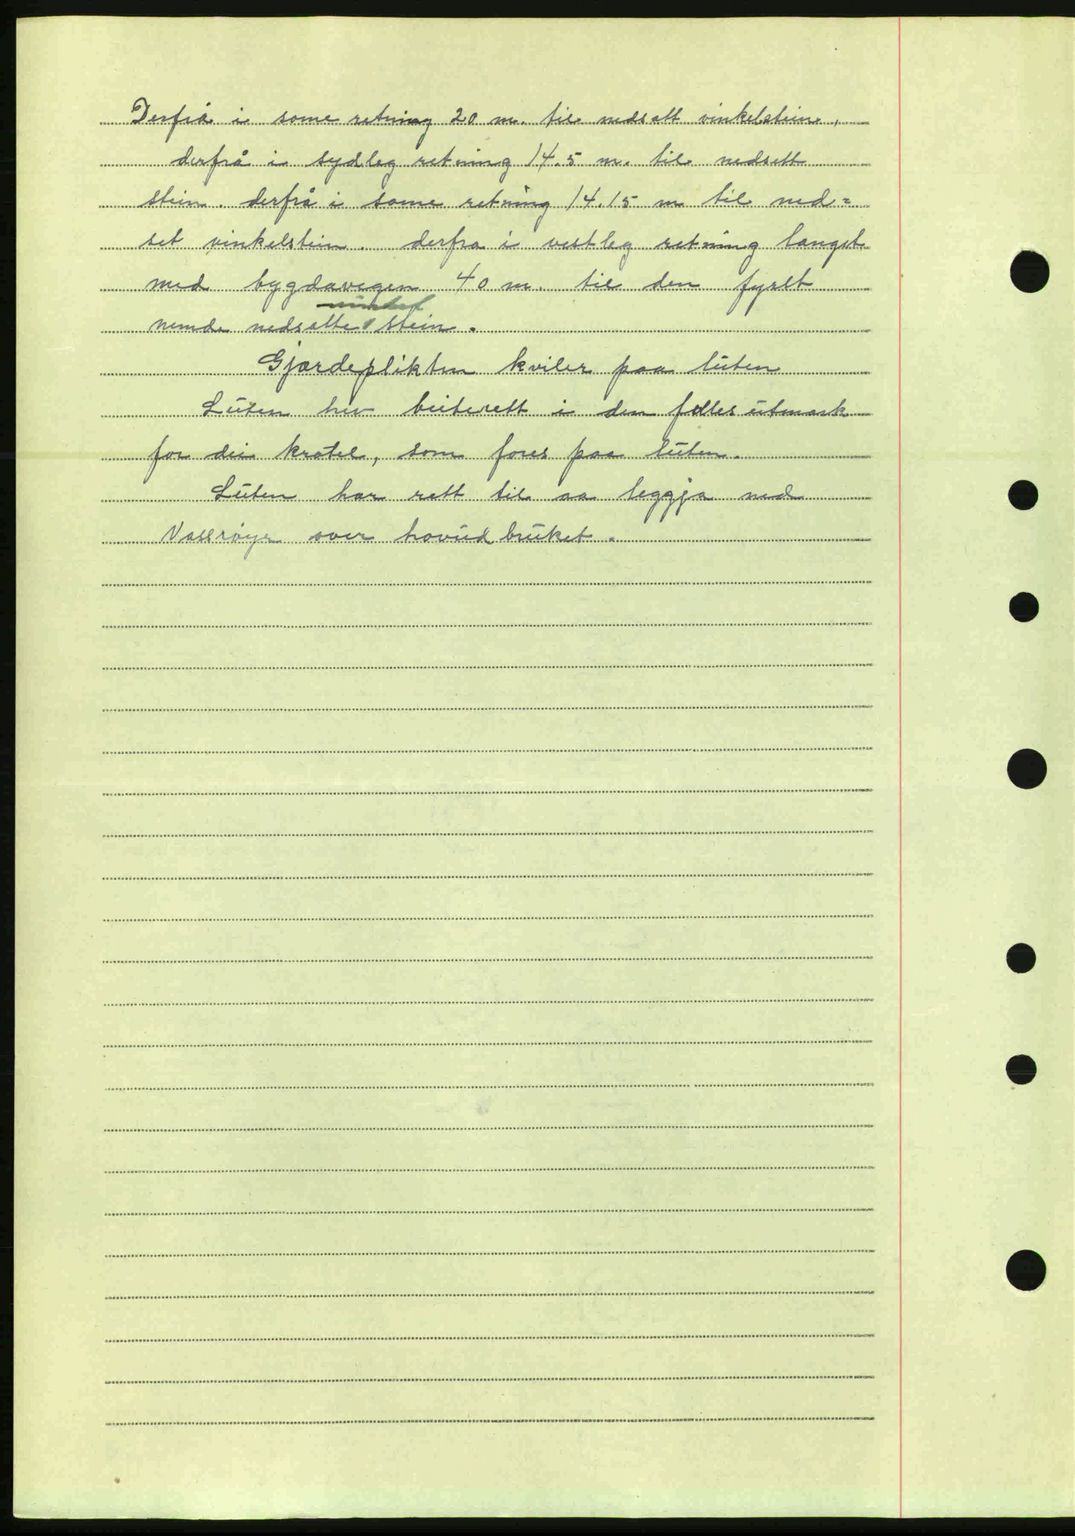 Derfrå i same retning 20 m. til nedsatt vinkelstein,
derfrå i sydleg retning 14.5 m. til nedsett
stein. derfrå i same retning 14.15 m til ned=
set vinkelstein. derfra i vestleg retning langst
med bygdavegen 40 m. til den fyrst
vinkel
nemde nedsatte stein.
Gjærdeplikten kviler paa luten
Luten hev beiterett i den felles utmark
for dei krøtel, som fores paa luten.
Luten har rett til aa leggja ned
Vassrøyr over hovudbruket.